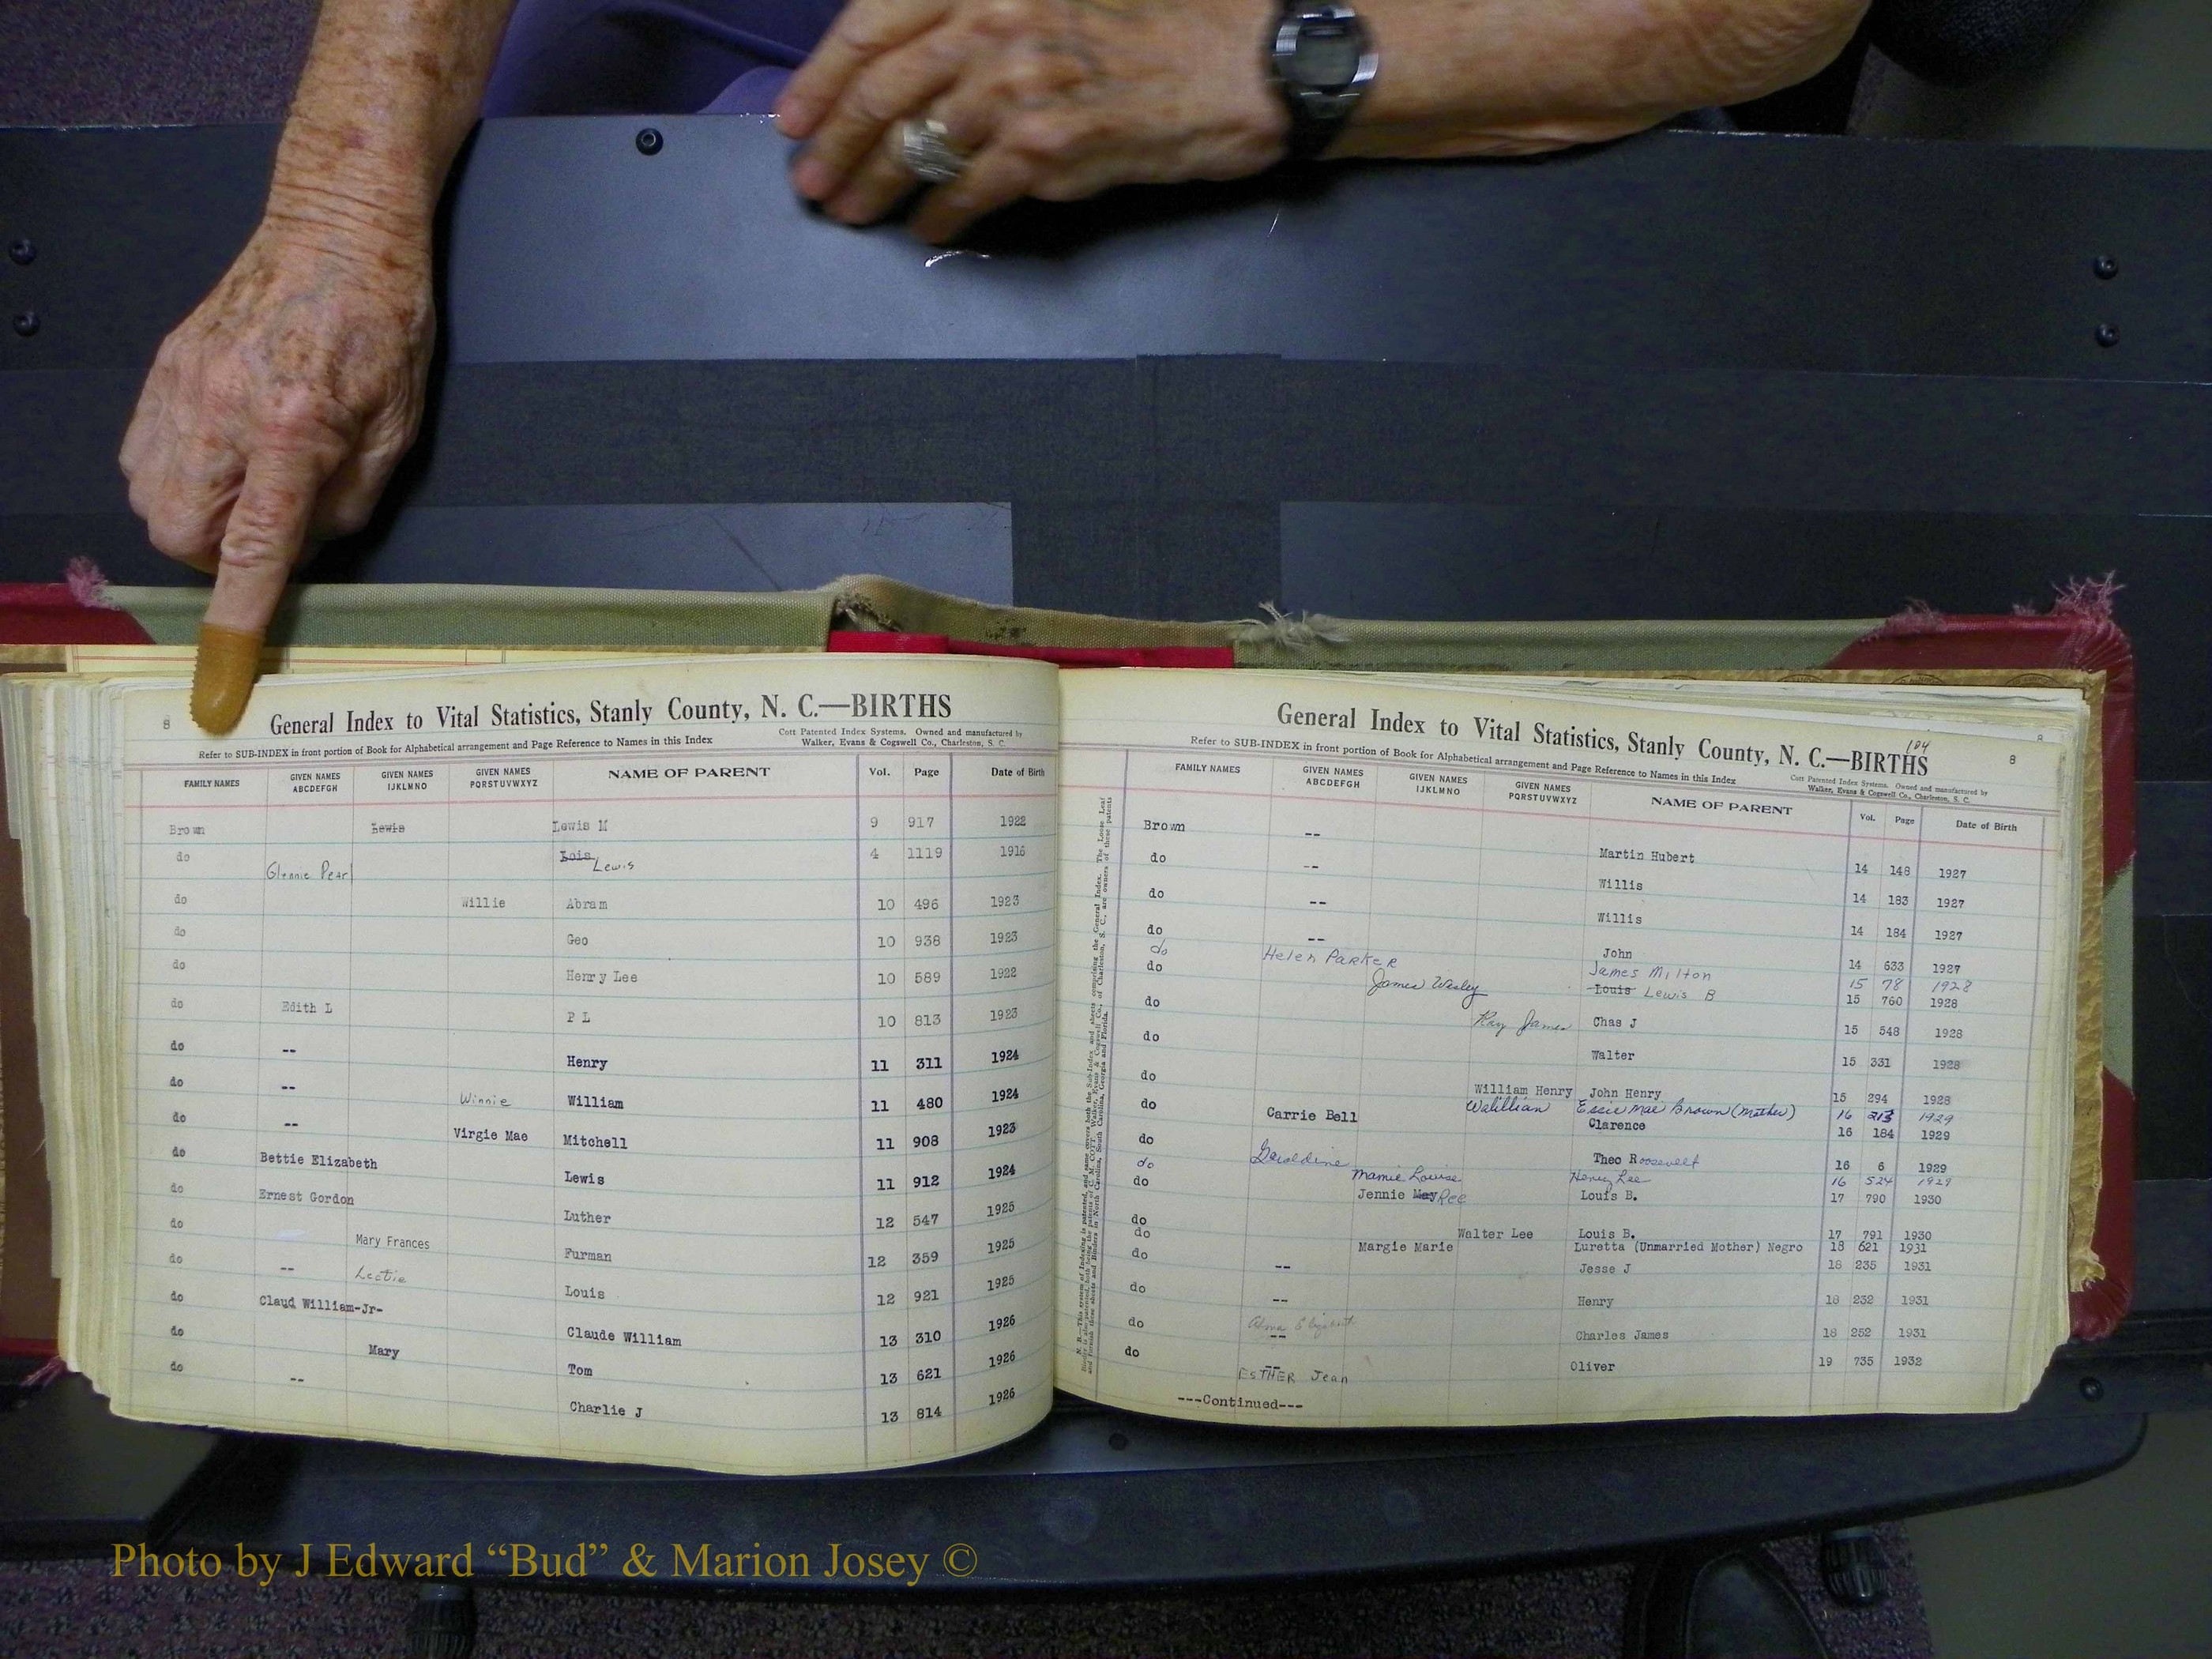 8
General Index to Vital Statistics, Stanly County, N. C.—BIRTHS
Refer to SUB-INDEX in front portion of Book for Alphabetical arrangement and Page Reference to Names in this Index
Cott Patented Index Systems. Owned and manufactured by
Walker, Evans & Cogswell Co., Charleston, S. C.
FAMILY NAMES GIVEN NAMES ABCDEFGH GIVEN NAMES IJKLMNO GIVEN NAMES PQRSTUVWXYZ NAME OF PARENT Vol. Page Date of Birth
Brown Lewis Lewis M 9 917 1922
do Glennie Pearl Lois Lewis 4 1119 1916
do Willie Abram 10 496 1923
do Geo 10 938 1923
do Henry Lee 10 589 1922
do Edith L P L 10 813 1923
do -- Henry 11 311 1924
do -- Winnie William 11 480 1924
do -- Virgie Mae Mitchell 11 908 1923
do Bettie Elizabeth Lewis 11 912 1924
do Ernest Gordon Luther 12 547 1925
do Mary Frances Furman 12 359 1925
do -- Lectie Louis 12 921 1925
do Claud William-Jr- Claude William 13 310 1926
do Mary Tom 13 621 1926
do -- Charlie J 13 814 1926
104
8
8
General Index to Vital Statistics, Stanly County, N. C.—BIRTHS
Refer to SUB-INDEX in front portion of Book for Alphabetical arrangement and Page Reference to Names in this Index
Cott Patented Index Systems. Owned and manufactured by
Walker, Evans & Cogswell Co., Charleston, S. C.
FAMILY NAMES GIVEN NAMES ABCDEFGH GIVEN NAMES IJKLMNO GIVEN NAMES PQRSTUVWXYZ NAME OF PARENT Vol. Page Date of Birth
Brown -- Martin Hubert 14 148 1927
do -- Willis 14 183 1927
do -- Willis 14 184 1927
do -- John 14 633 1927
do Helen Parker James Milton 15 78 1928
do James Wesley Louis Lewis B 15 760 1928
do Ray James Chas J 15 548 1928
do Walter 15 331 1928
do William Henry John Henry 15 294 1928
Essie Mae Brown (Mother) 16 213 1929
do Carrie Bell Clarence 16 184 1929
do Geraldine Theo Roosevelt 16 6 1929
do Mamie Louise Henry Lee 16 524 1929
do Jennie May Ree Louis B. 17 790 1930
do Walter Lee Louis B. 17 791 1930
do Margie Marie Luretta (Unmarried Mother) Negro 18 621 1931
do -- Jesse J 18 235 1931
do -- Henry 18 232 1931
do Alma Elizabeth -- Charles James 18 252 1931
do -- Esther Jean Oliver 19 735 1932
---Continued---
Photo by J Edward “Bud” & Marion Josey ©